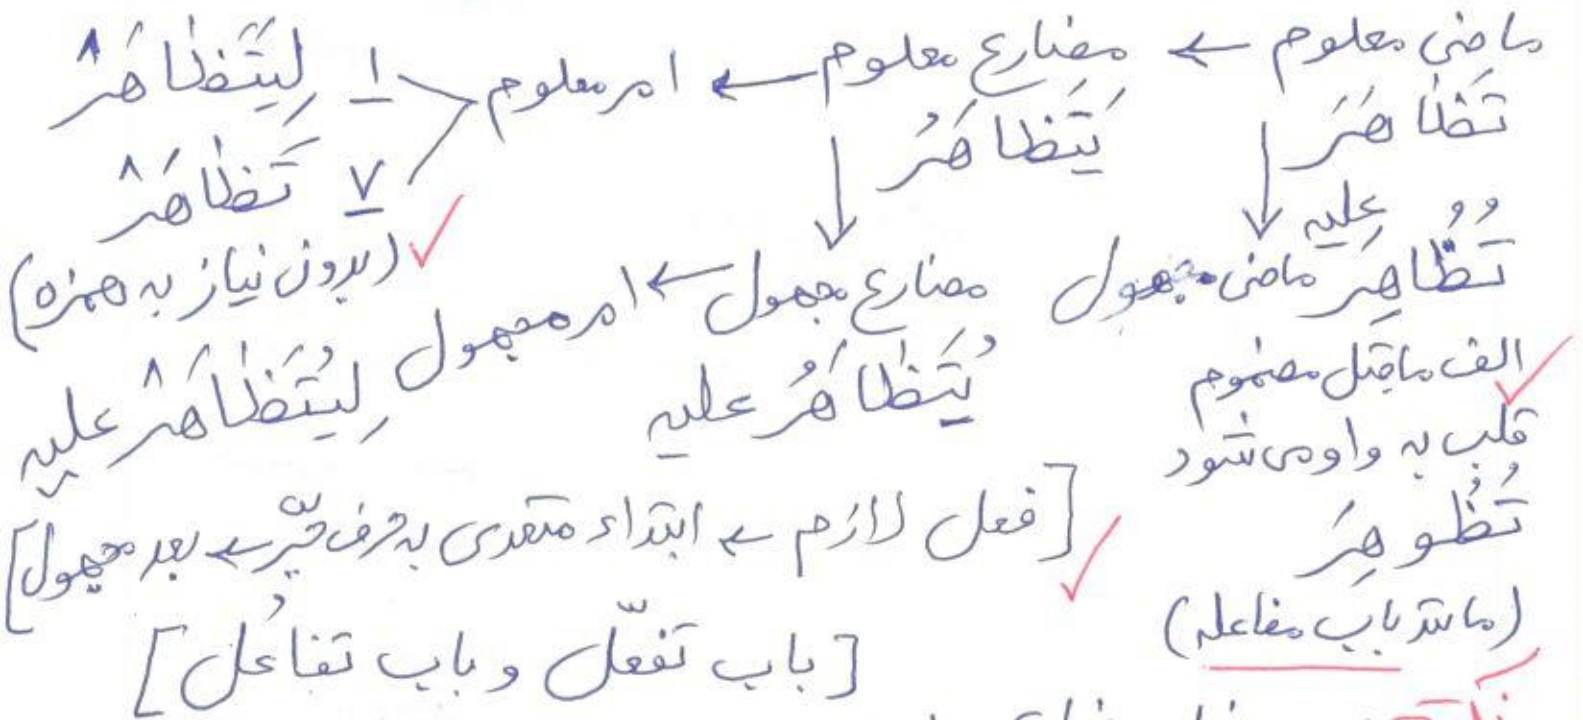 ماضی معلوم ← مضارع معلوم ← امر معلوم ۱ لِیَتَظاهَرْ
تَظاهَرَ یَتَظاهَرُ ۷ تَظاهَرْ
(بدون نیاز به همزه)
تُظُاهِرَ علیه ماضی مجهول مضارع مجهول ← امر مجهول
یُتَظاهَرُ علیه لِیُتَظاهَرْ علیه
الف ماقبل مضموم
قلب به واو می شود
تُظُوهِرَ
(مانند باب مفاعله)
[فعل لازم ← ابتداء متعدی به حرف جرّ ← بعد مجهول]
[باب تفعّل و باب تفاعُل]